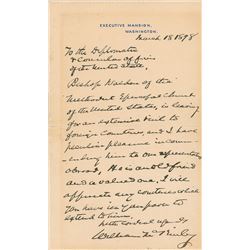 EXECUTIVE MANSION,
WASHINGTON.
March 18 1898
To the Diplomatic
& Consular officers
of the United States.
Bishop Walden of the
Methodist Episcopal Church of
the United States, is leaving
for an extensive visit to
foreign countries, and I have
peculiar pleasure in com-
mending him to our representatives
abroad. He is an old friend
and a valued one, I will
appreciate any courtesies which
you have it in your power to
extend to him.
William McKinley